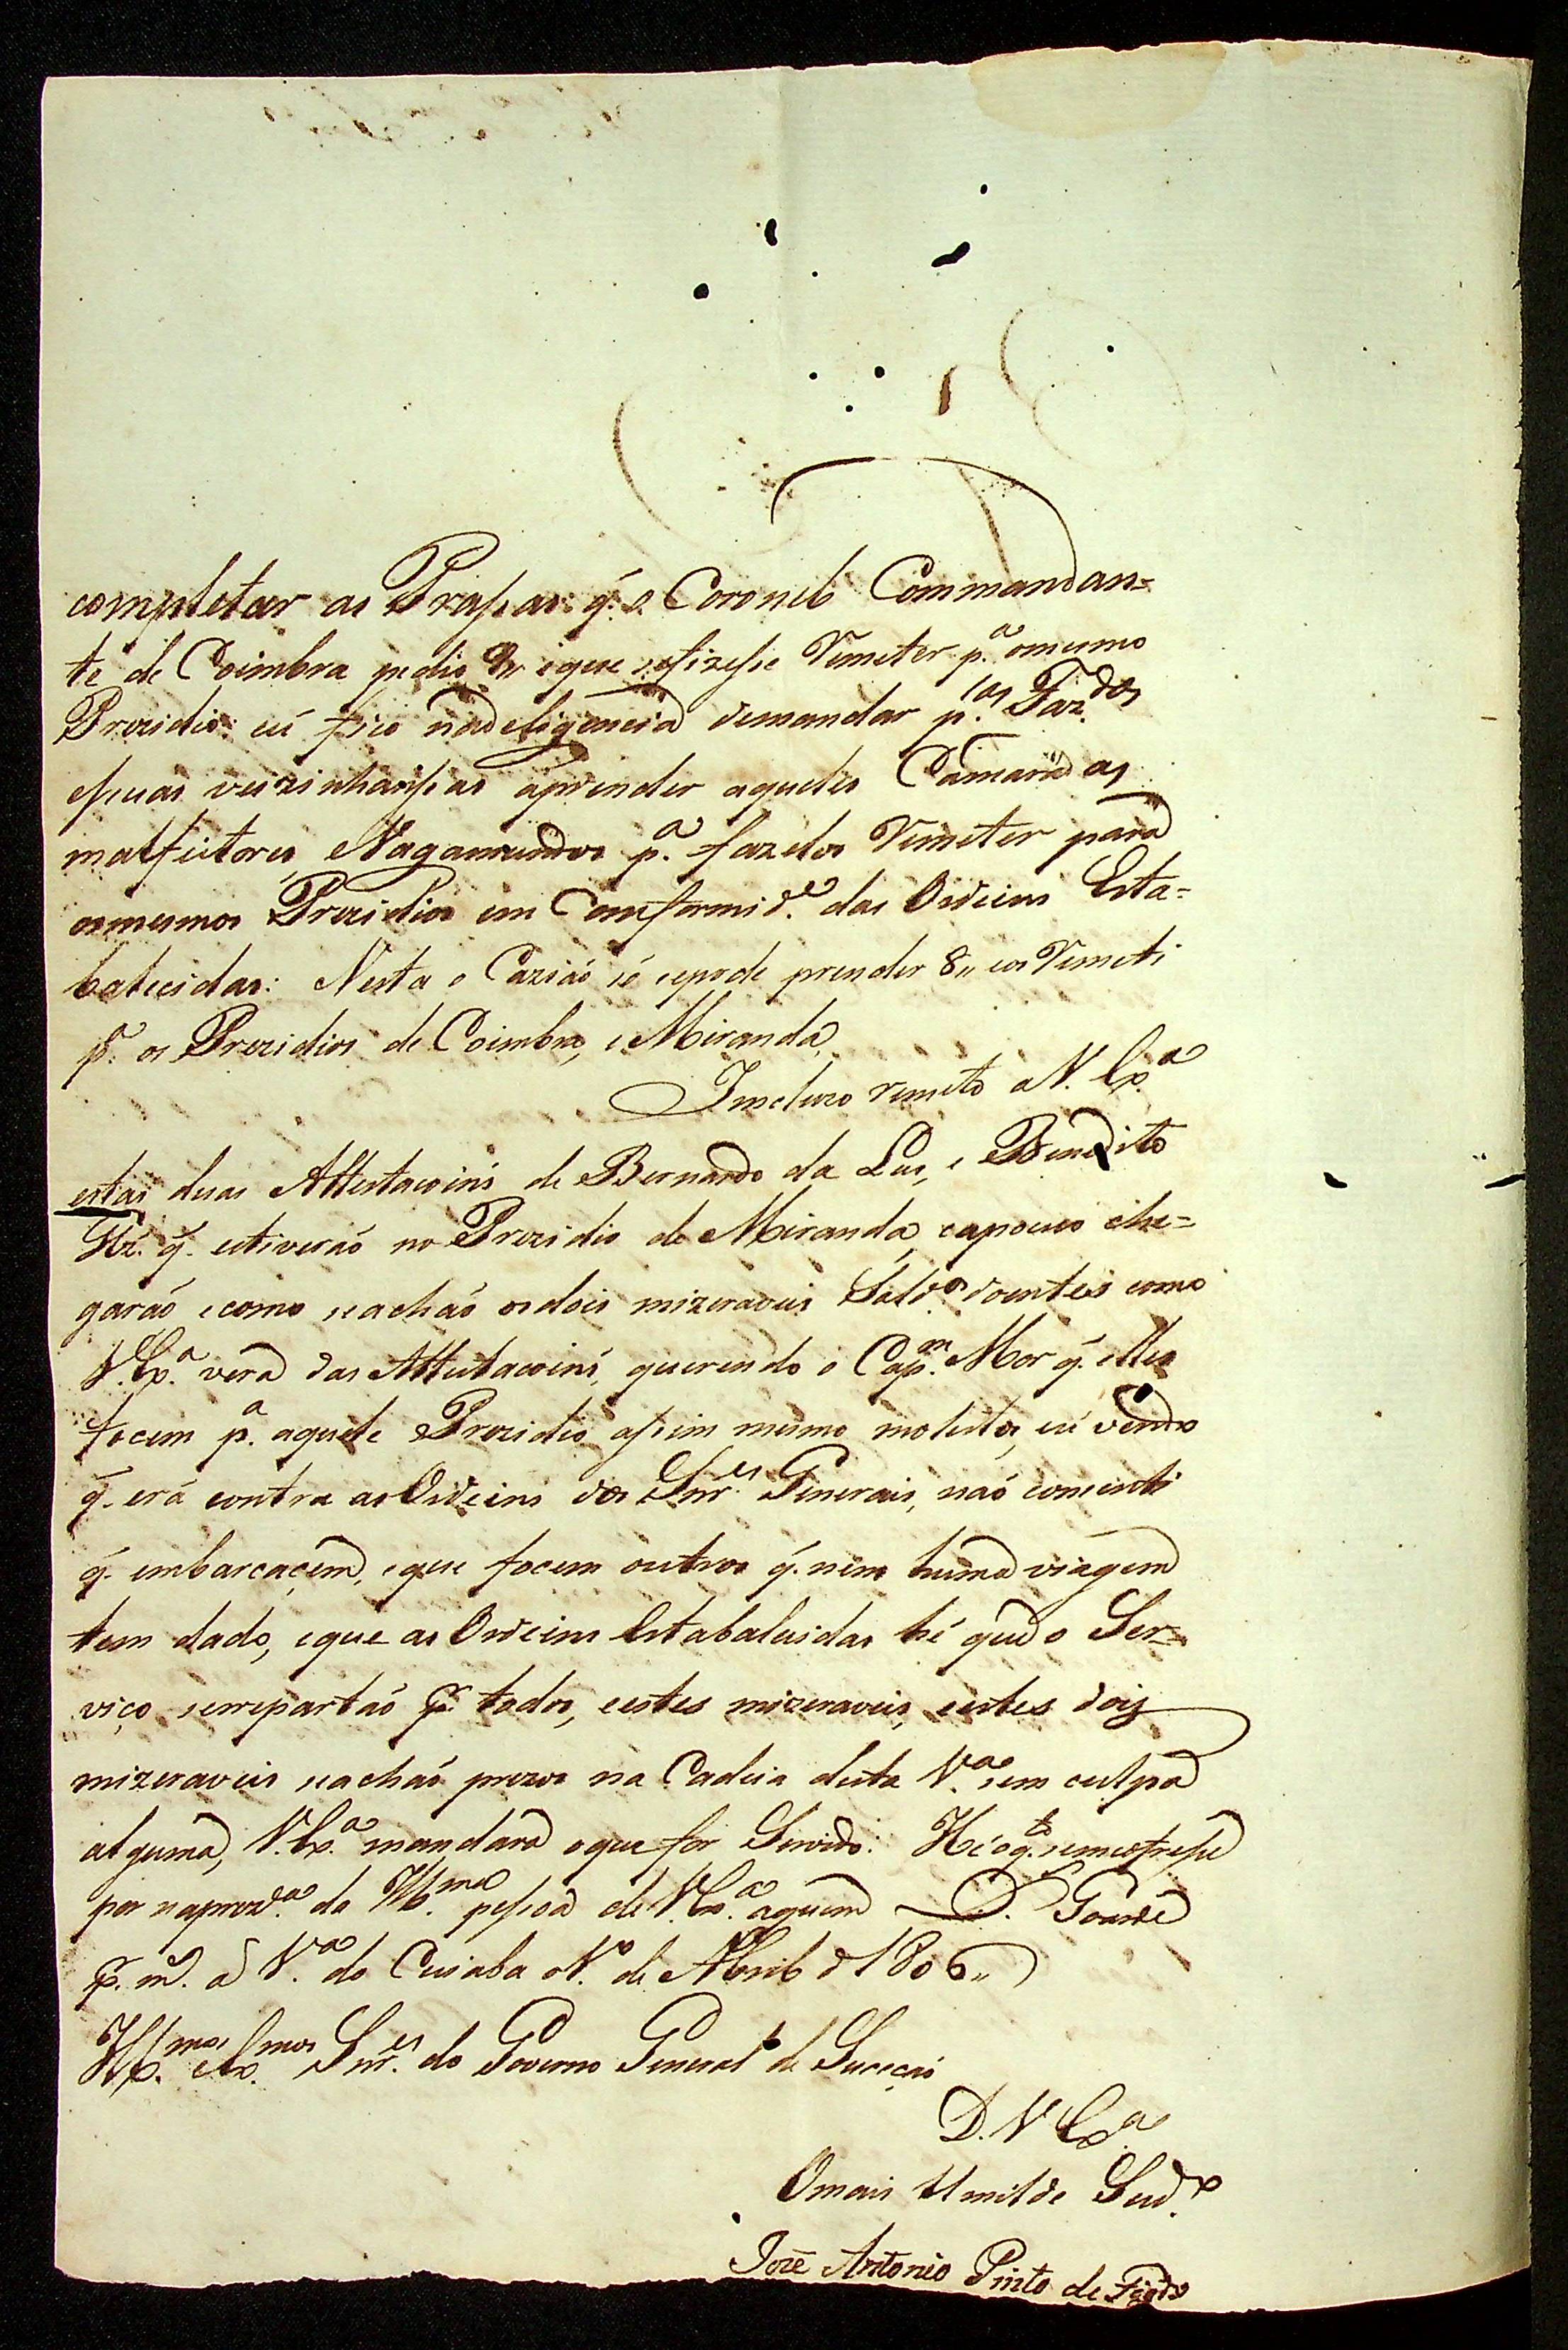 completar as Prasas: q̃. o Coronel Commandan=
te de Coimbra pedio eque sefizesse Remeter p.ª omesmo
Prezidio: eú fico nadeligencia demandar p.las Faz.das
esuas vezinhansas aprender aqueles Camaradas
malfeitores, Vagamundos p.ª fazelos Remeter para
osmesmos Prezidios em Comformid.e das Ordeins Esta=
balecidas: Nesta o Cazião só sepode prender 8,, eos Remeti
p.ª os Prezidios de Coimbra, e Miranda,
Imcluzo remeto a V. Ex.ª
estas duas Attestacoins de Bernardo da Lus, e Benedito
q̃. estiverão no Prezidio de Miranda, eapouco che=
garão ecomo seachão osdois mizeraveis Sold.os doentes como
V. Ex.ª verá das Attestacoins, querendo o Cap.m Mor q̃. elles
focem p.ª aquele Prezidio assim mesmo molestos, eú vendo
q̃. erá contra as Ordeins dos Snr.es Generais, não comcenti
q̃. embarcaçem, eque focem outros q̃. nem huma viagem
tem dado, eque as Ordeins Estabalesidas hé que o Ser=
viço serrepartão p.r todos, eestes mizeraveis, eestes dois
mizeraveis seachão prezos na Cadeia desta V.ª sem culpa
alguma, V. Ex.ª mandará oque for Servido: Hé oq.to semeofrese
por naprez.ª da Ill.ma pessoa de V. Ex.ª aquem D.s Goarde
p.r m.s a V.ª do Cuiaba de Abril d 1806,,
Ill.mos eEx.mos Snr.es do Governo General de Suceção
D. V Ex.ª
Omais Umilde Sud.o
Joze Antonio Pinto de Figdo